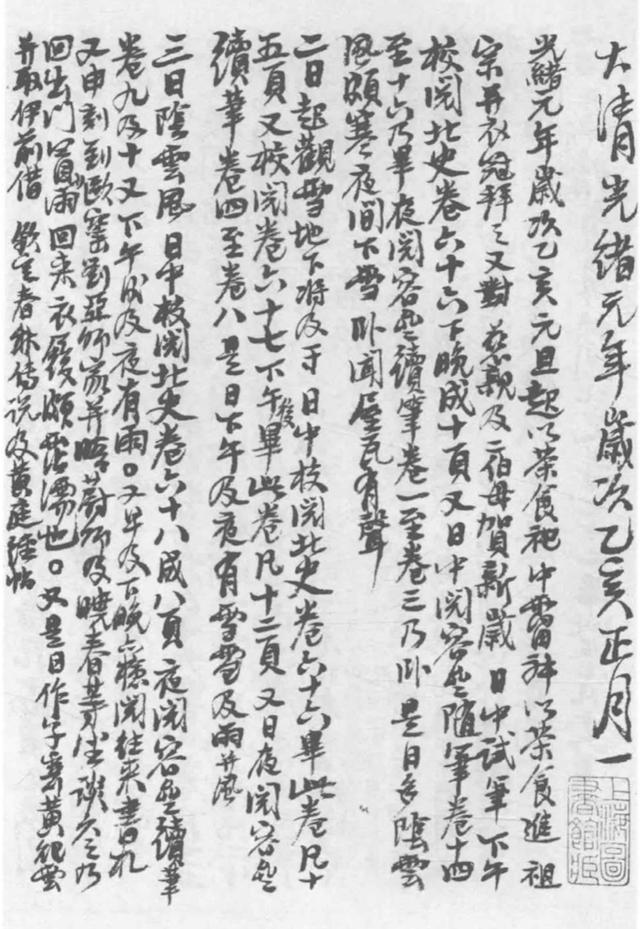 大清光緒元年歲次乙亥正月一
光緒元年歲次乙亥元旦起以茶食祀中霤神以茶食進 祖
宗并衣冠拜之又對 慈親及二伯母賀新歲 日中試筆下午
校閱北史卷六十六下晚成十頁又日中閱容齋隨筆卷十四
至十六乃畢夜閱容齋續筆卷一至卷三乃卧是日多陰雲
風頗寒夜間下雪卧聞屋瓦有聲
二日起觀雪地下將及寸日中校閱北史卷六十六畢此卷凡十
五頁又校閱卷六十七下午後畢此卷凡十二頁又日夜閱容齋
續筆卷四至卷八是日下午及夜有雪雪及雨并風
三日陰雲風日中校閱北史卷六十八成八頁夜閱容齋續筆
卷九及十又下午間及夜有雨。又早及下晚六樣閱往來書札
又申刻到歐窰劉亞師家并晤蔚師及曉春等坐談久之乃
回出門冒雨回來衣履頗霑濡也。又是日作字寄黃
并取伊前借 欽定春秋傳說及黃庭經帖
上海圖書館